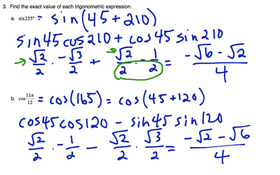 3. Find the exact value of each trigonometric expression.
a. sin255° = sin(45+210)
sin45cos210 + cos45sin210
→ √2/2 · -√3/2 + √2/2 · 1/2 = -√6 - √2 / 4
b. cos 11π/12 = cos(165) = cos(45+120)
cos45cos120 - sin45sin120
√2/2 · -1/2 - √2/2 · √3/2 = -√2 - √6 / 4